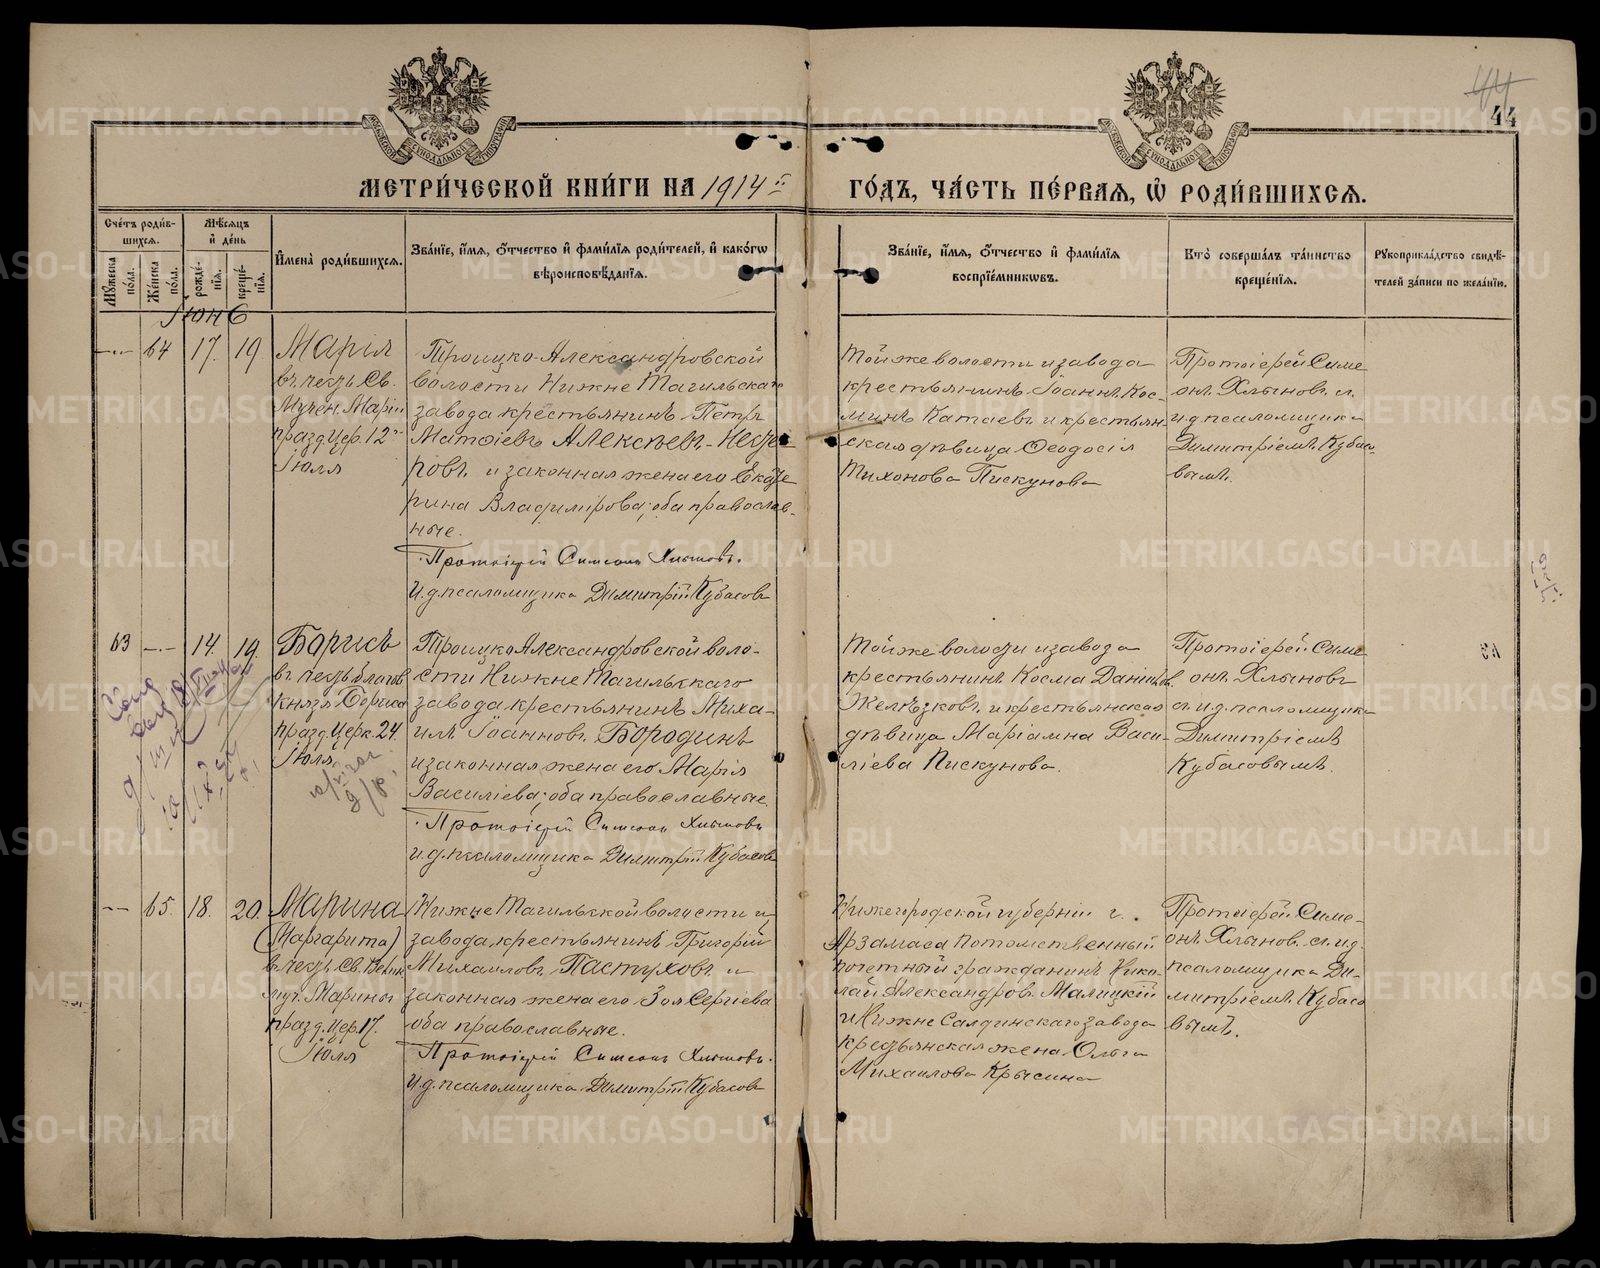 44
44
МЕТРИ́ЧЕСКОЙ КНИ́ГИ НА 1914 г.
ГО́ДЪ, ЧА́СТЬ ПЕ́РВАЯ, Ѡ҆ РОДИ́ВШИХСЯ.
Сче́тъ роди́в-
шихся.
Мѣ́сяцъ
и҆ де́нь
Мꙋ́жеска по́ла.
Же́нска по́ла.
рожде́-
нїя.
креще́-
нїя.
И҆мена̀ роди́вшихся.
Зва́нїе, и҆́мя, ѻ҆́тчество и҆ фами́лїя роди́телей, и҆ како́гѡ
вѣроисповѣ́данїя.
Зва́нїе, и҆́мя, ѻ҆́тчество и҆ фами́лїя
воспрїе́мникѡвъ.
Кто̀ соверша́лъ та́инство
креще́нїя.
Рꙋкоприкла́дство свидѣ́-
телей за́писи по жела́нїю.
Іюнь
64
17.
19
Марія
въ честь Св.
Мучен. Маріи
празд. Цер. 12го
Іюля
Троицко-Александровской
волости Нижне Тагильскаго
завода крестьянинъ Петръ
Матѳіевъ Алексѣевъ-Нефе
ровъ и законная жена его Екате
рина Владимірова; оба православ-
ные.
Протоіерей Симеонъ Хлыновъ.
И. д. псаломщика Димитрій Кубасовъ
Той же волости и завода
крестьянинъ Іоаннъ Кос-
минъ Катаевъ и крестьян-
ская дѣвица Ѳеодосія
Тихонова Пискунова
Протоіерей Симе
онъ Хлыновъ съ
и. д. псаломщика
Димитріемъ Кубасо
вымъ.
63
14.
19.
Борисъ
въ честь благов
князя Бориса
празд. Церк. 24.
Іюля
Троицко Александровской воло-
сти Нижне Тагильскаго
завода крестьянинъ Миха-
илъ Іоанновъ Бородинъ
и законная жена его Марія
Василіева; оба православные
Протоіерей Симеонъ Хлыновъ
и. д. псаломщика Димитрій Кубасовъ
Той же волости и завода
крестьянинъ Косма Даниловъ
Желѣзковъ и крестьянская
дѣвица Маріамна Васи-
ліева Пискунова.
Протоіерей Симе
онъ Хлыновъ
съ и. д. псаломщика
Димитріемъ
Кубасовымъ.
65.
18.
20.
Марина
(Маргарита)
въ честь Св. Велик
муч. Марины
празд. Цер. 17.
Іюля
Нижне Тагильской волости и
завода, крестьянинъ Григорій
Михаиловъ Пастуховъ и
законная жена его Зоя Сергіева
оба православные.
Протоіерей Симеонъ Хлыновъ.
И. д. псаломщика Димитрій Кубасовъ
Нижегородской губерніи г.
Арзамаса потомственный
почетный гражданинъ Нико-
лай Александровъ Малицкій
и Нижне Салдинскаго завода
крестьянская жена Ольга
Михаилова Крысина
Протоіерей Симе-
онъ Хлыновъ съ и. д.
псаломщика Ди-
митріемъ Кубасо
вымъ.
METRIKI.GASO-URAL.RU